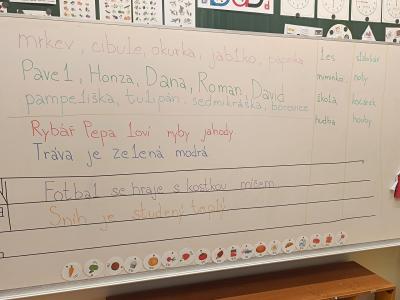 mrkev, cibule, okurka, jablko, paprika
Pavel, Honza, Dana, Roman, David
pampeliška, tulipán, sedmikráska, borovice
Rybář Pepa loví ryby jahody
Tráva je zelená modrá
Fotbal se hraje s kostkou míčem.
Sníh je studený teplý
les
miminko
škola
hudba
noty
kočárek
houby